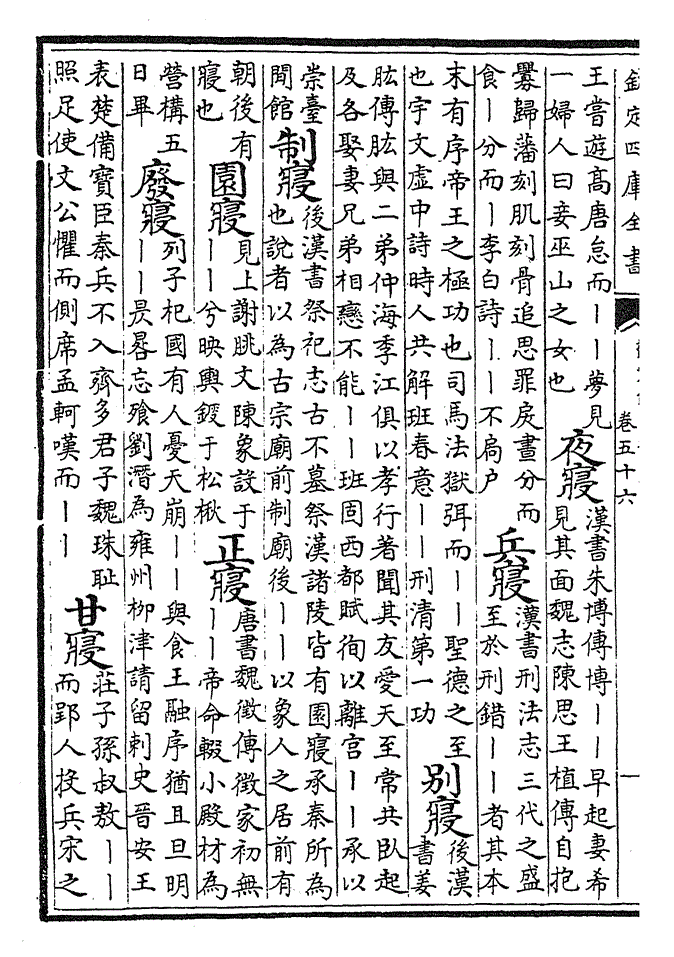 欽定四庫全書
卷五十六
一
王嘗遊髙唐怠而丨丨夢見
一婦人曰妾巫山之女也
夜寢
漢書朱博傳博丨丨早起妻希
見其面魏志陳思王植傳自抱
釁歸藩刻肌刻骨追思罪戾晝分而
食丨分而丨李白詩丨丨不扄户
兵寢
漢書刑法志三代之盛
至於刑錯丨丨者其本
末有序帝王之極功也司馬法獄弭而丨丨聖德之至
也宇文虛中詩時人共解班春意丨丨刑清第一功
别寢
後漢
書姜
肱傳肱與二弟仲海季江俱以孝行著聞其友愛天至常共卧起
及各娶妻兄弟相戀不能丨丨班固西都賦徇以離宫丨丨承以
崇臺
閒館
制寢
後漢書祭祀志古不墓祭漢諸陵皆有園寢承秦所為
也說者以為古宗廟前制廟後丨丨以象人之居前有
朝後有
寢也
園寢
見上謝朓文陳象設于
丨丨兮映輿鍐于松楸
正寢
唐書魏徵傳徵家初無
丨丨帝命輟小殿材為
營構五
日畢
廢寢
列子杞國有人憂天崩丨丨與食王融序猶且旦明
丨丨昃晷忘飱劉潛為雍州柳津請留刺史晉安王
表楚備寶臣秦兵不入齊多君子魏珠耻
照足使文公懼而側席孟軻嘆而丨丨
甘寢
莊子孫叔敖丨丨
而郢人投兵宋之